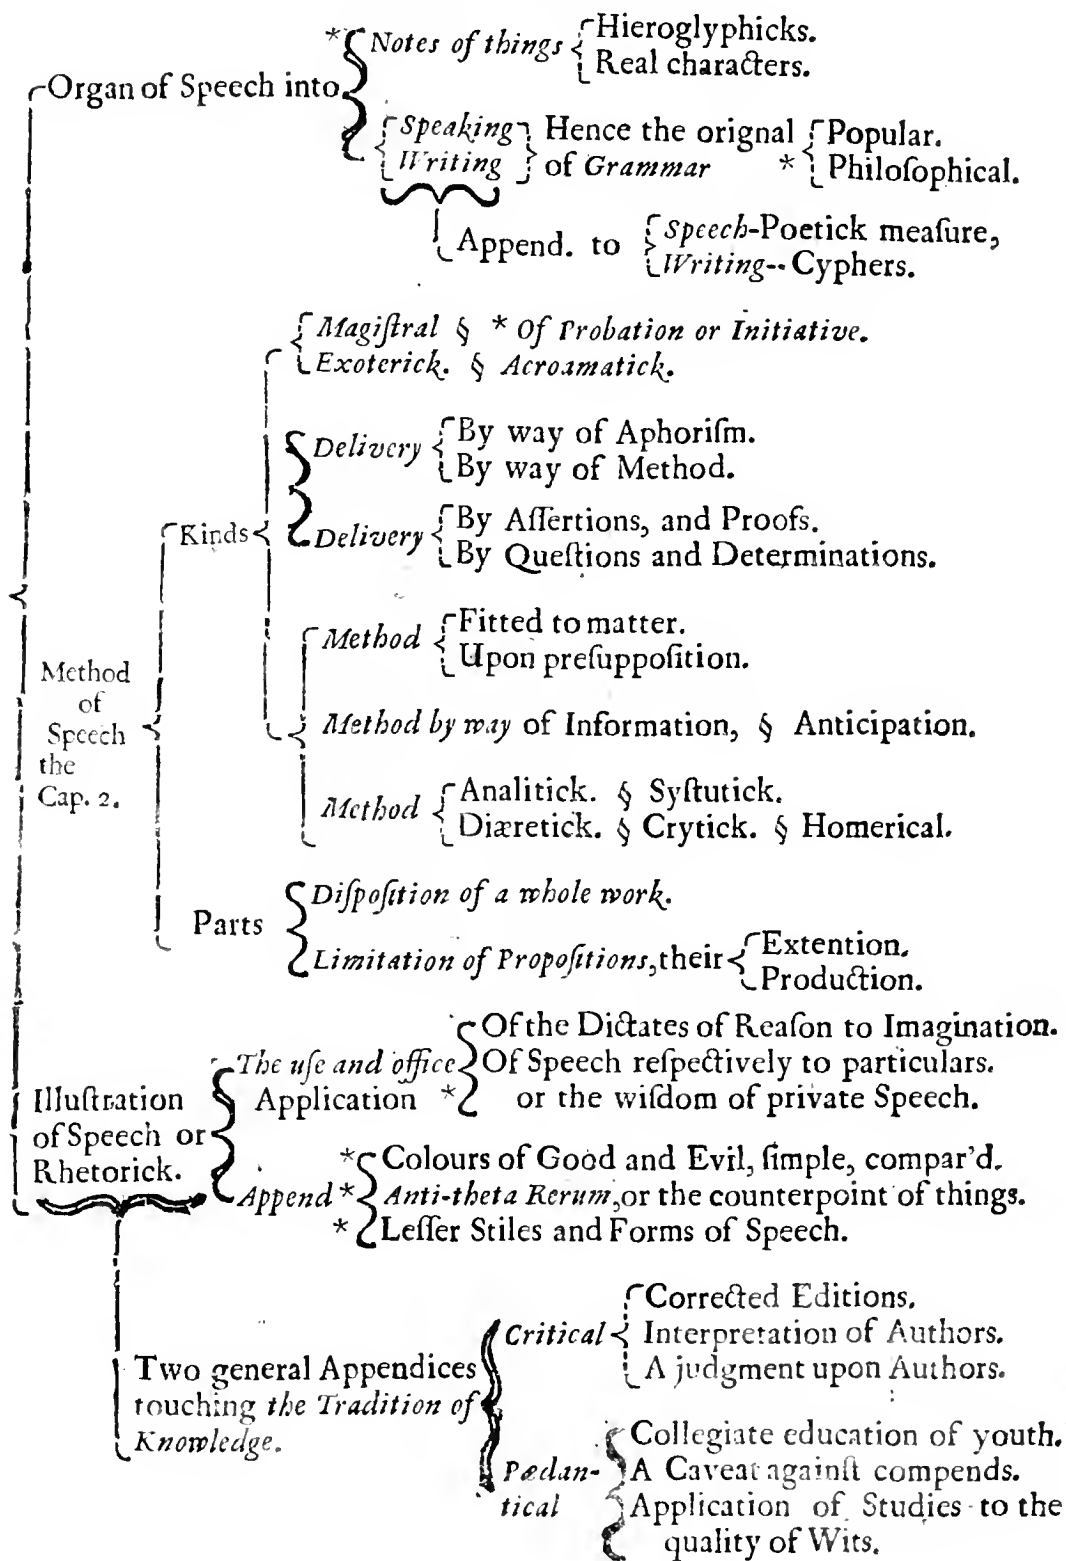 * Notes of things { Hieroglyphicks.
Real characters.
Organ of Speech into
Speaking } Hence the orignal { Popular.
Writing } of Grammar * { Philoſophical.
Append. to { Speech-Poetick meaſure,
Writing-- Cyphers.
Magiſtral § * Of Probation or Initiative.
Exoterick. § Acroamatick.
Delivery { By way of Aphoriſm.
By way of Method.
Kinds
Delivery { By Aſſertions, and Proofs.
By Queſtions and Determinations.
Method { Fitted to matter.
Upon preſuppoſition.
Method
of
Speech
the
Cap. 2.
Method by way of Information, § Anticipation.
Method { Analitick. § Syſtutick.
Diæretick. § Crytick. § Homerical.
Parts { Diſpoſition of a whole work.
Limitation of Propoſitions, their { Extention.
Production.
Illuſtration
of Speech or
Rhetorick.
The uſe and office
Application *
Of the Dictates of Reaſon to Imagination.
Of Speech reſpectively to particulars.
or the wiſdom of private Speech.
* Colours of Good and Evil, ſimple, compar'd.
Append * Anti-theta Rerum, or the counterpoint of things.
* Leſſer Stiles and Forms of Speech.
Two general Appendices
touching the Tradition of
Knowledge.
Critical { Corrected Editions.
Interpretation of Authors.
A judgment upon Authors.
Pædan-
tical
Collegiate education of youth.
A Caveat againſt compends.
Application of Studies to the
quality of Wits.